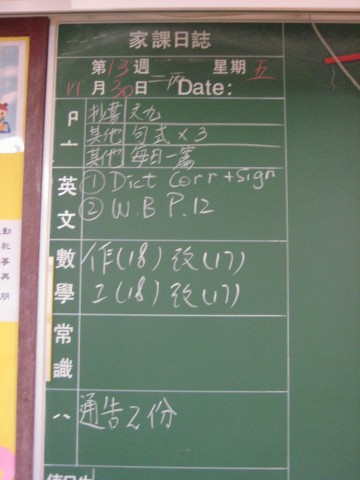 家課日誌
第13週 星期五
11月30日 Date:
抄書 文九
其他 句式 x 3
其他 每日一篇
英文 ① Dict Corr + Sign
② W.B P.12
數學 作(18) 改(17)
工(18) 改(17)
常識
通告2份